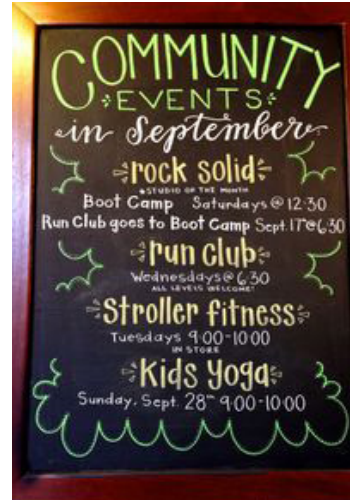 COMMUNITY
EVENTS
in September
rock solid
*STUDIO OF THE MONTH
Boot Camp Saturdays @ 12:30
Run Club goes to Boot Camp Sept. 17th @ 6:30
run club
Wednesdays @ 6:30
ALL LEVELS WELCOME!
Stroller fitness
Tuesdays 9:00-10:00
IN STORE
Kids Yoga
Sunday, Sept. 28th 9:00-10:00